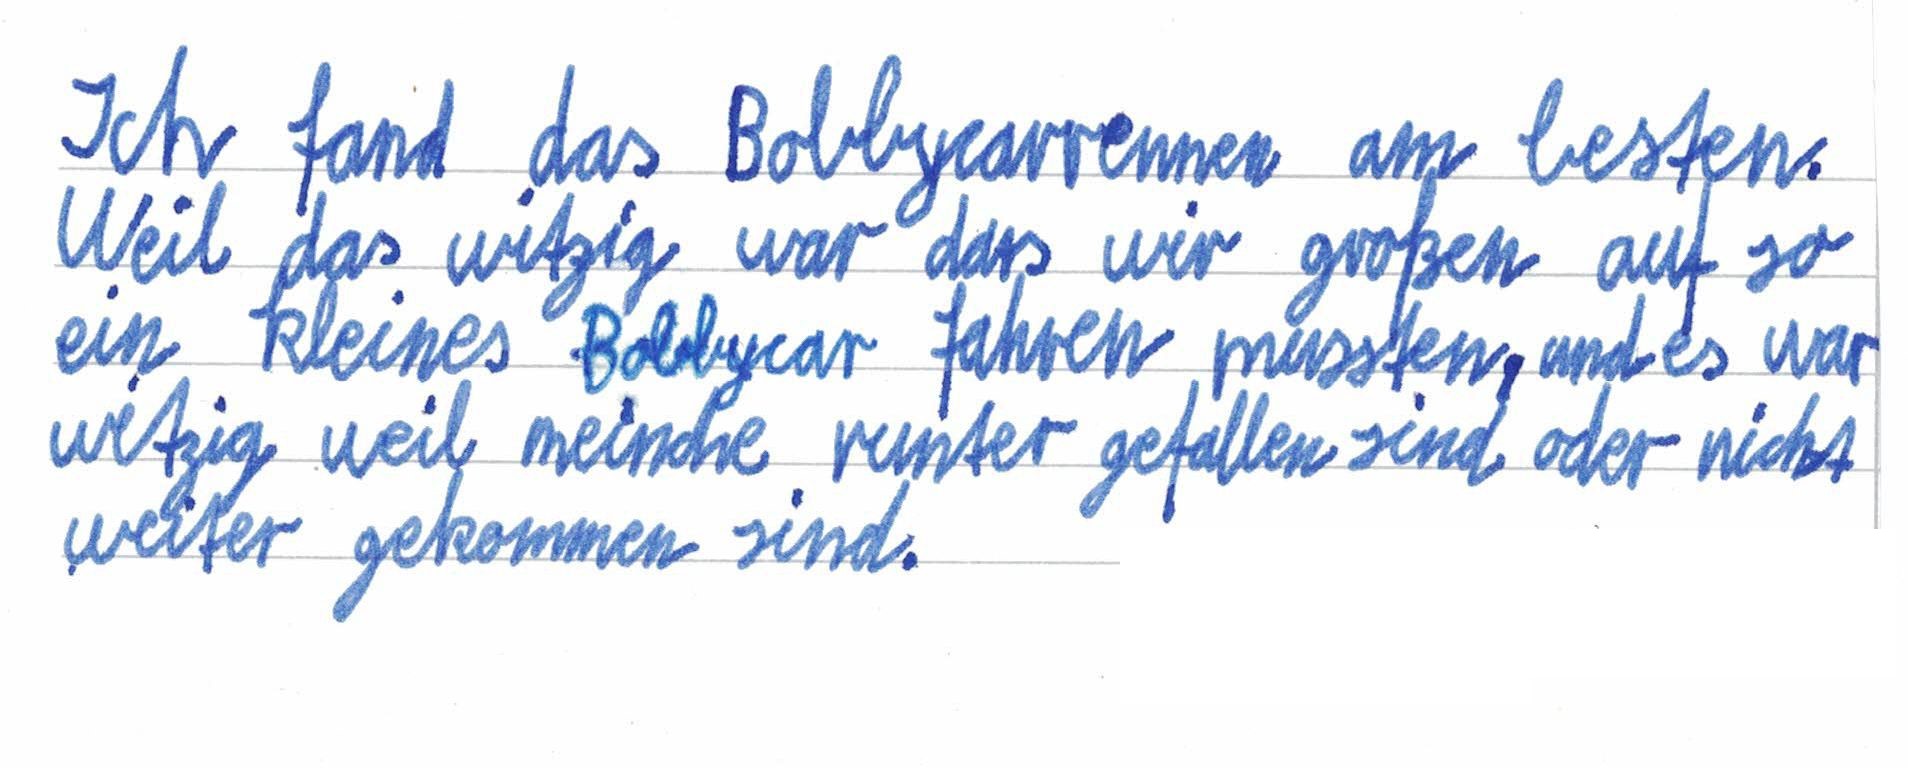 Ich fand das Bobbycarrennen am besten.
Weil das witzig war dass wir großen auf so
ein kleines Bobbycar fahren mussten, und es war
witzig weil meinche runter gefallen sind oder nicht
weiter gekommen sind.